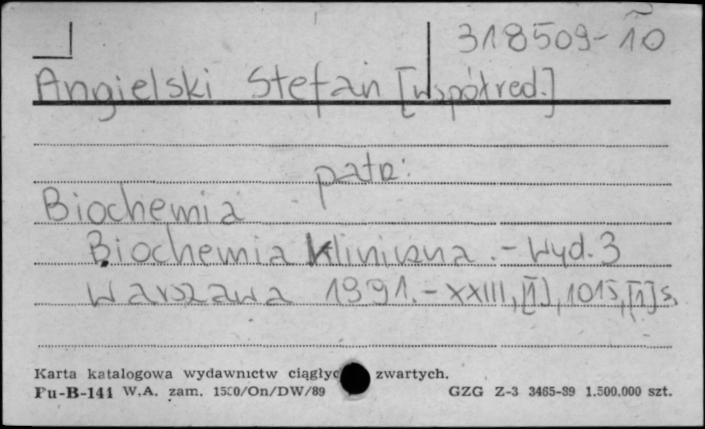 318509-10
Angielski Stefan [współred.]
patrz:
Biochemia
Biochemia kliniczna. - Wyd. 3
Warszawa 1991. - XXIII, [1], 1015, [1] s.
Karta katalogowa wydawnictw ciągłyc zwartych.
Pu-B-141 W.A. zam. 1500/On/DW/89 GZG Z-3 3465-89 1.500.000 szt.